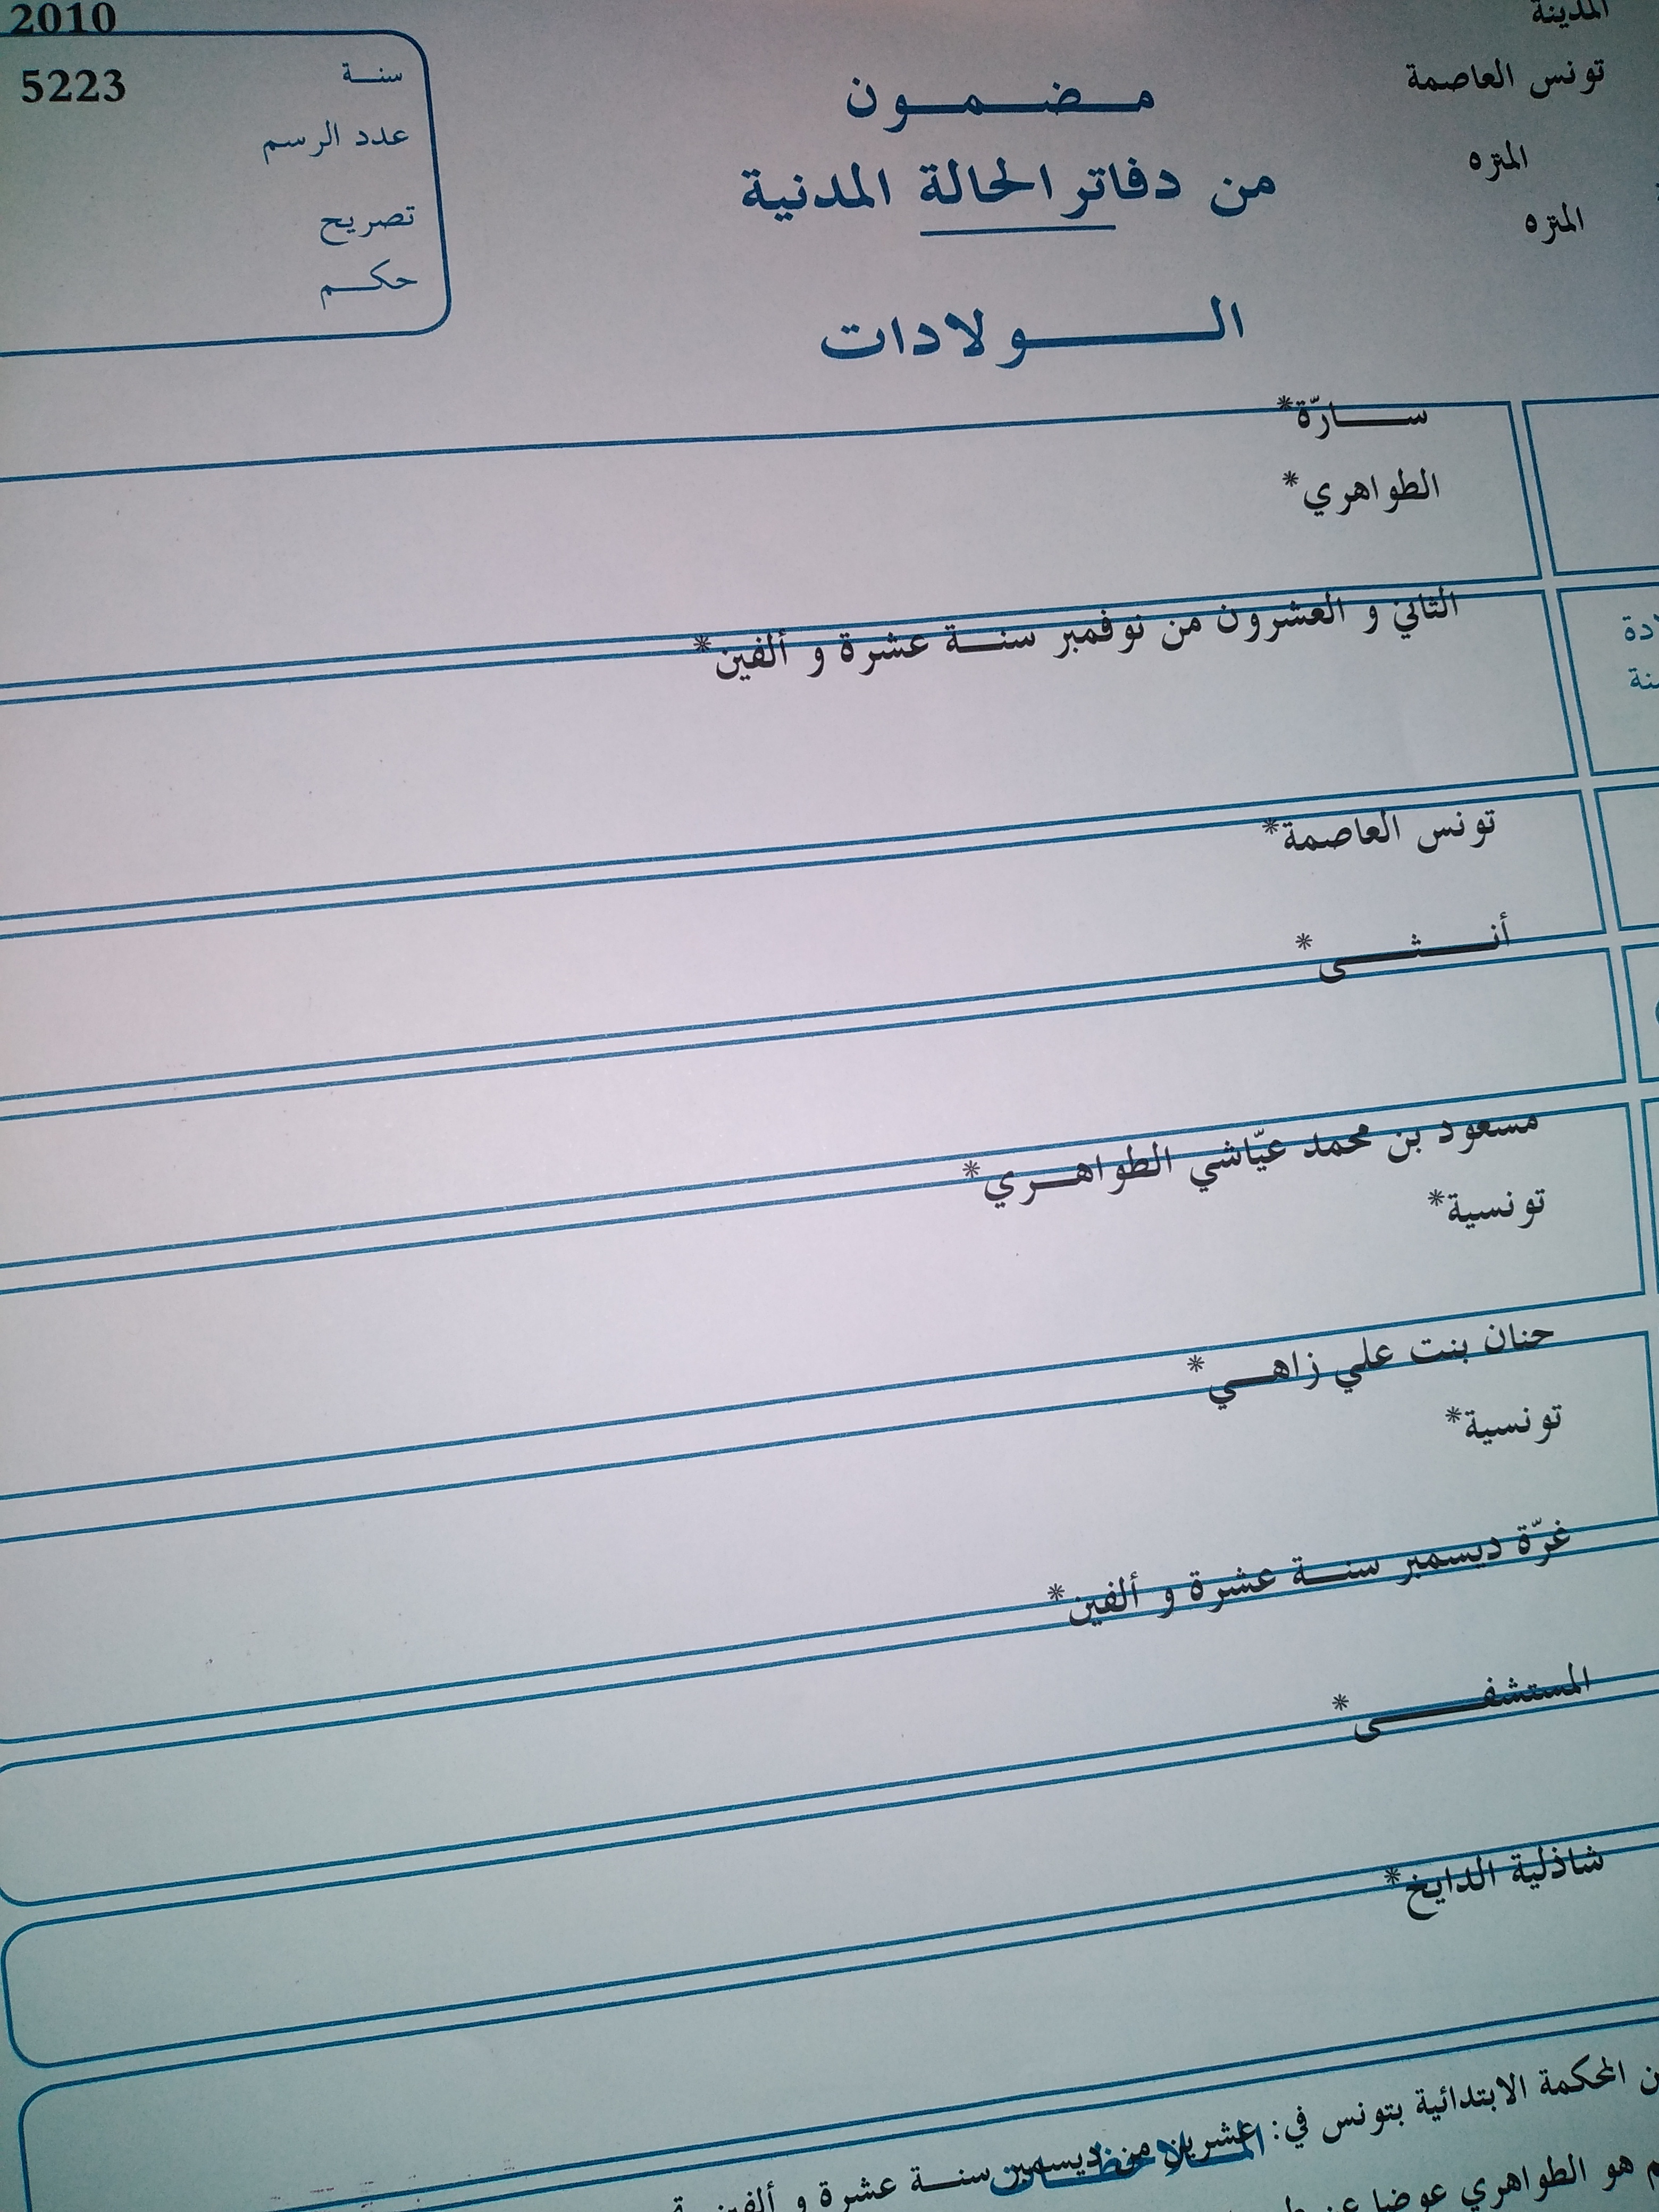 المدينة
تونس العاصمة
المتره
المتره
2010
سنة
5223
عدد الرسم
تصريح
حكم
مضمون
من دفاتر الحالة المدنية
الولادات
سارّة*
الطواهري*
الثاني و العشرون من نوفمبر سنة عشرة و ألفين*
تونس العاصمة*
أنثى*
مسعود بن محمد عيّاشي الطواهري*
تونسية*
حنان بنت علي زاهي*
تونسية*
غرّة ديسمبر سنة عشرة و ألفين*
المستشفى*
شاذلية الدايخ*
المحكمة الابتدائية بتونس في: عشرين من ديسمبر سنة عشرة و ألفين
الملاحظات
هو الطواهري عوضا عن